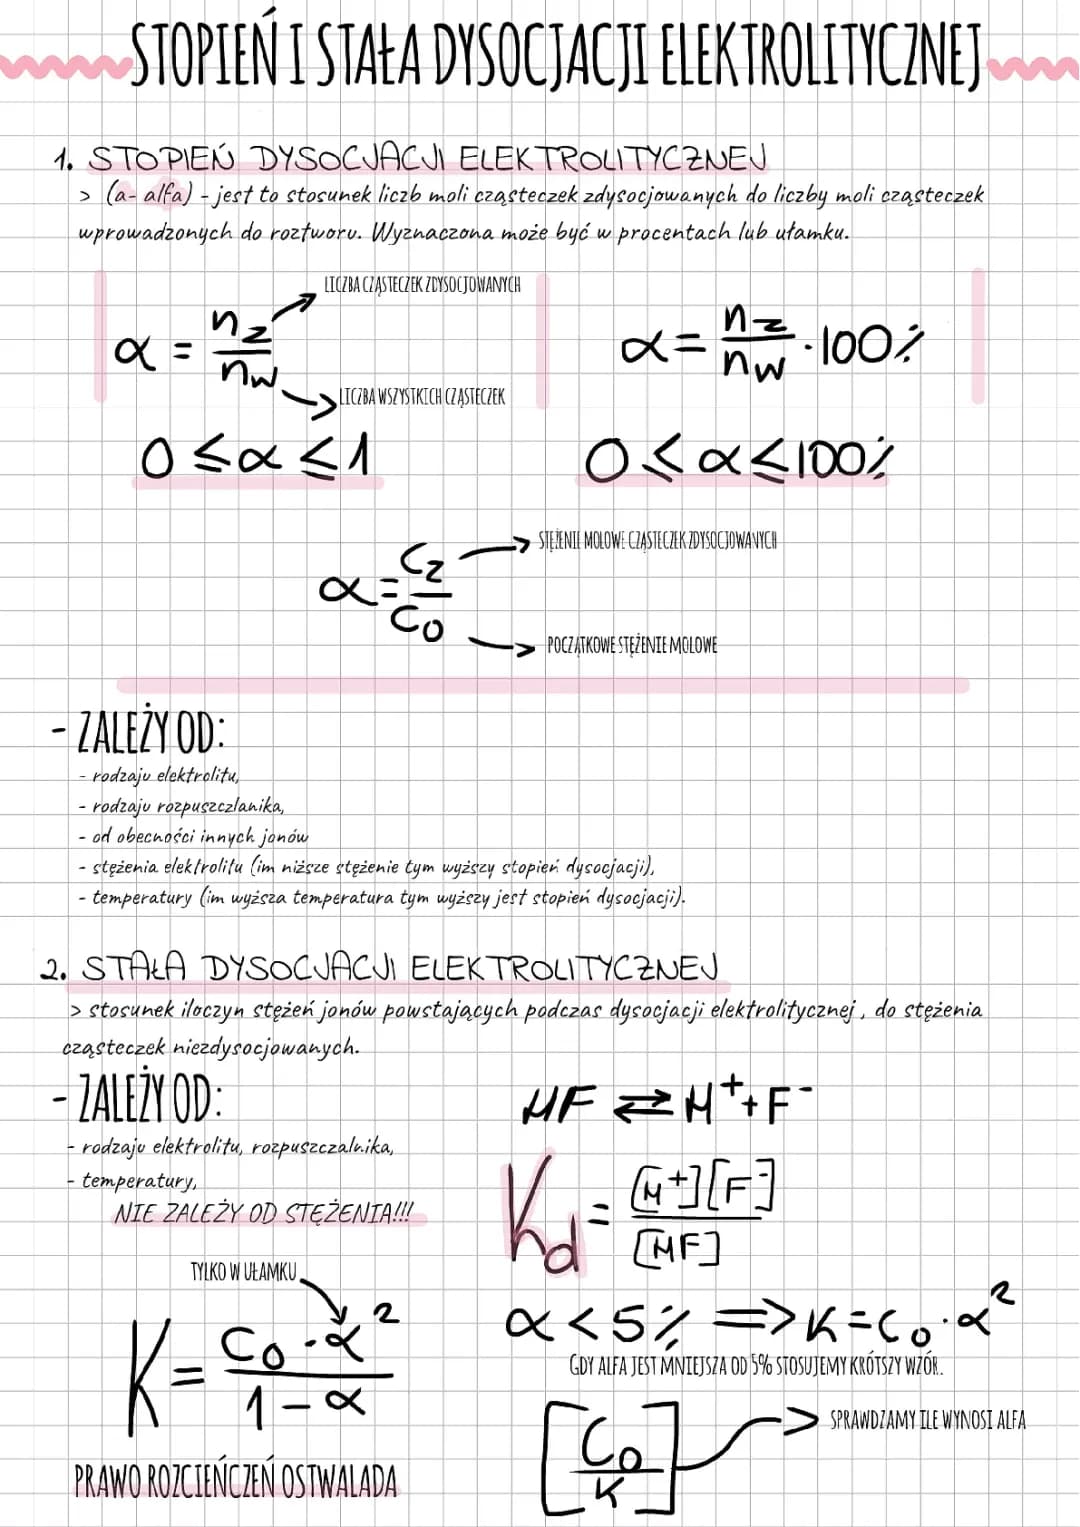 STOPIEŃ I STAŁA DYSOCJACJI ELEKTROLITYCZNEJ
1. STOPIEŃ DYSOCJACJI ELEKTROLITYCZNEJ
> (a- alfa) - jest to stosunek liczb moli cząsteczek zdysocjowanych do liczby moli cząsteczek
wprowadzonych do roztworu. Wyznaczona może być w procentach lub ułamku.
LICZBA CZĄSTECZEK ZDYSOCJOWANYCH
α = nz/nw
α = nz/nw · 100%
LICZBA WSZYSTKICH CZĄSTECZEK
0 ≤ α ≤ 1
0 ≤ α ≤ 100%
STĘŻENIE MOLOWE CZĄSTECZEK ZDYSOCJOWANYCH
α = Cz/Co
POCZĄTKOWE STĘŻENIE MOLOWE
- ZALEŻY OD:
- rodzaju elektrolitu,
- rodzaju rozpuszczlanika,
- od obecności innych jonów
- stężenia elektrolitu (im niższe stężenie tym wyższy stopień dysocjacji),
- temperatury (im wyższa temperatura tym wyższy jest stopień dysocjacji).
2. STAŁA DYSOCJACJI ELEKTROLITYCZNEJ
> stosunek iloczyn stężeń jonów powstających podczas dysocjacji elektrolitycznej, do stężenia
cząsteczek niezdysocjowanych.
- ZALEŻY OD:
- rodzaju elektrolitu, rozpuszczalnika,
- temperatury,
NIE ZALEŻY OD STĘŻENIA!!!
HF ⇄ H⁺ + F⁻
Kd = [H⁺][F⁻]/[HF]
TYLKO W UŁAMKU
K = Co · α²/1 - α
PRAWO ROZCIEŃCZEŃ OSTWALADA
α < 5% => K = Co · α²
GDY ALFA JEST MNIEJSZA OD 5% STOSUJEMY KRÓTSZY WZÓR.
[Co/K]
SPRAWDZAMY ILE WYNOSI ALFA